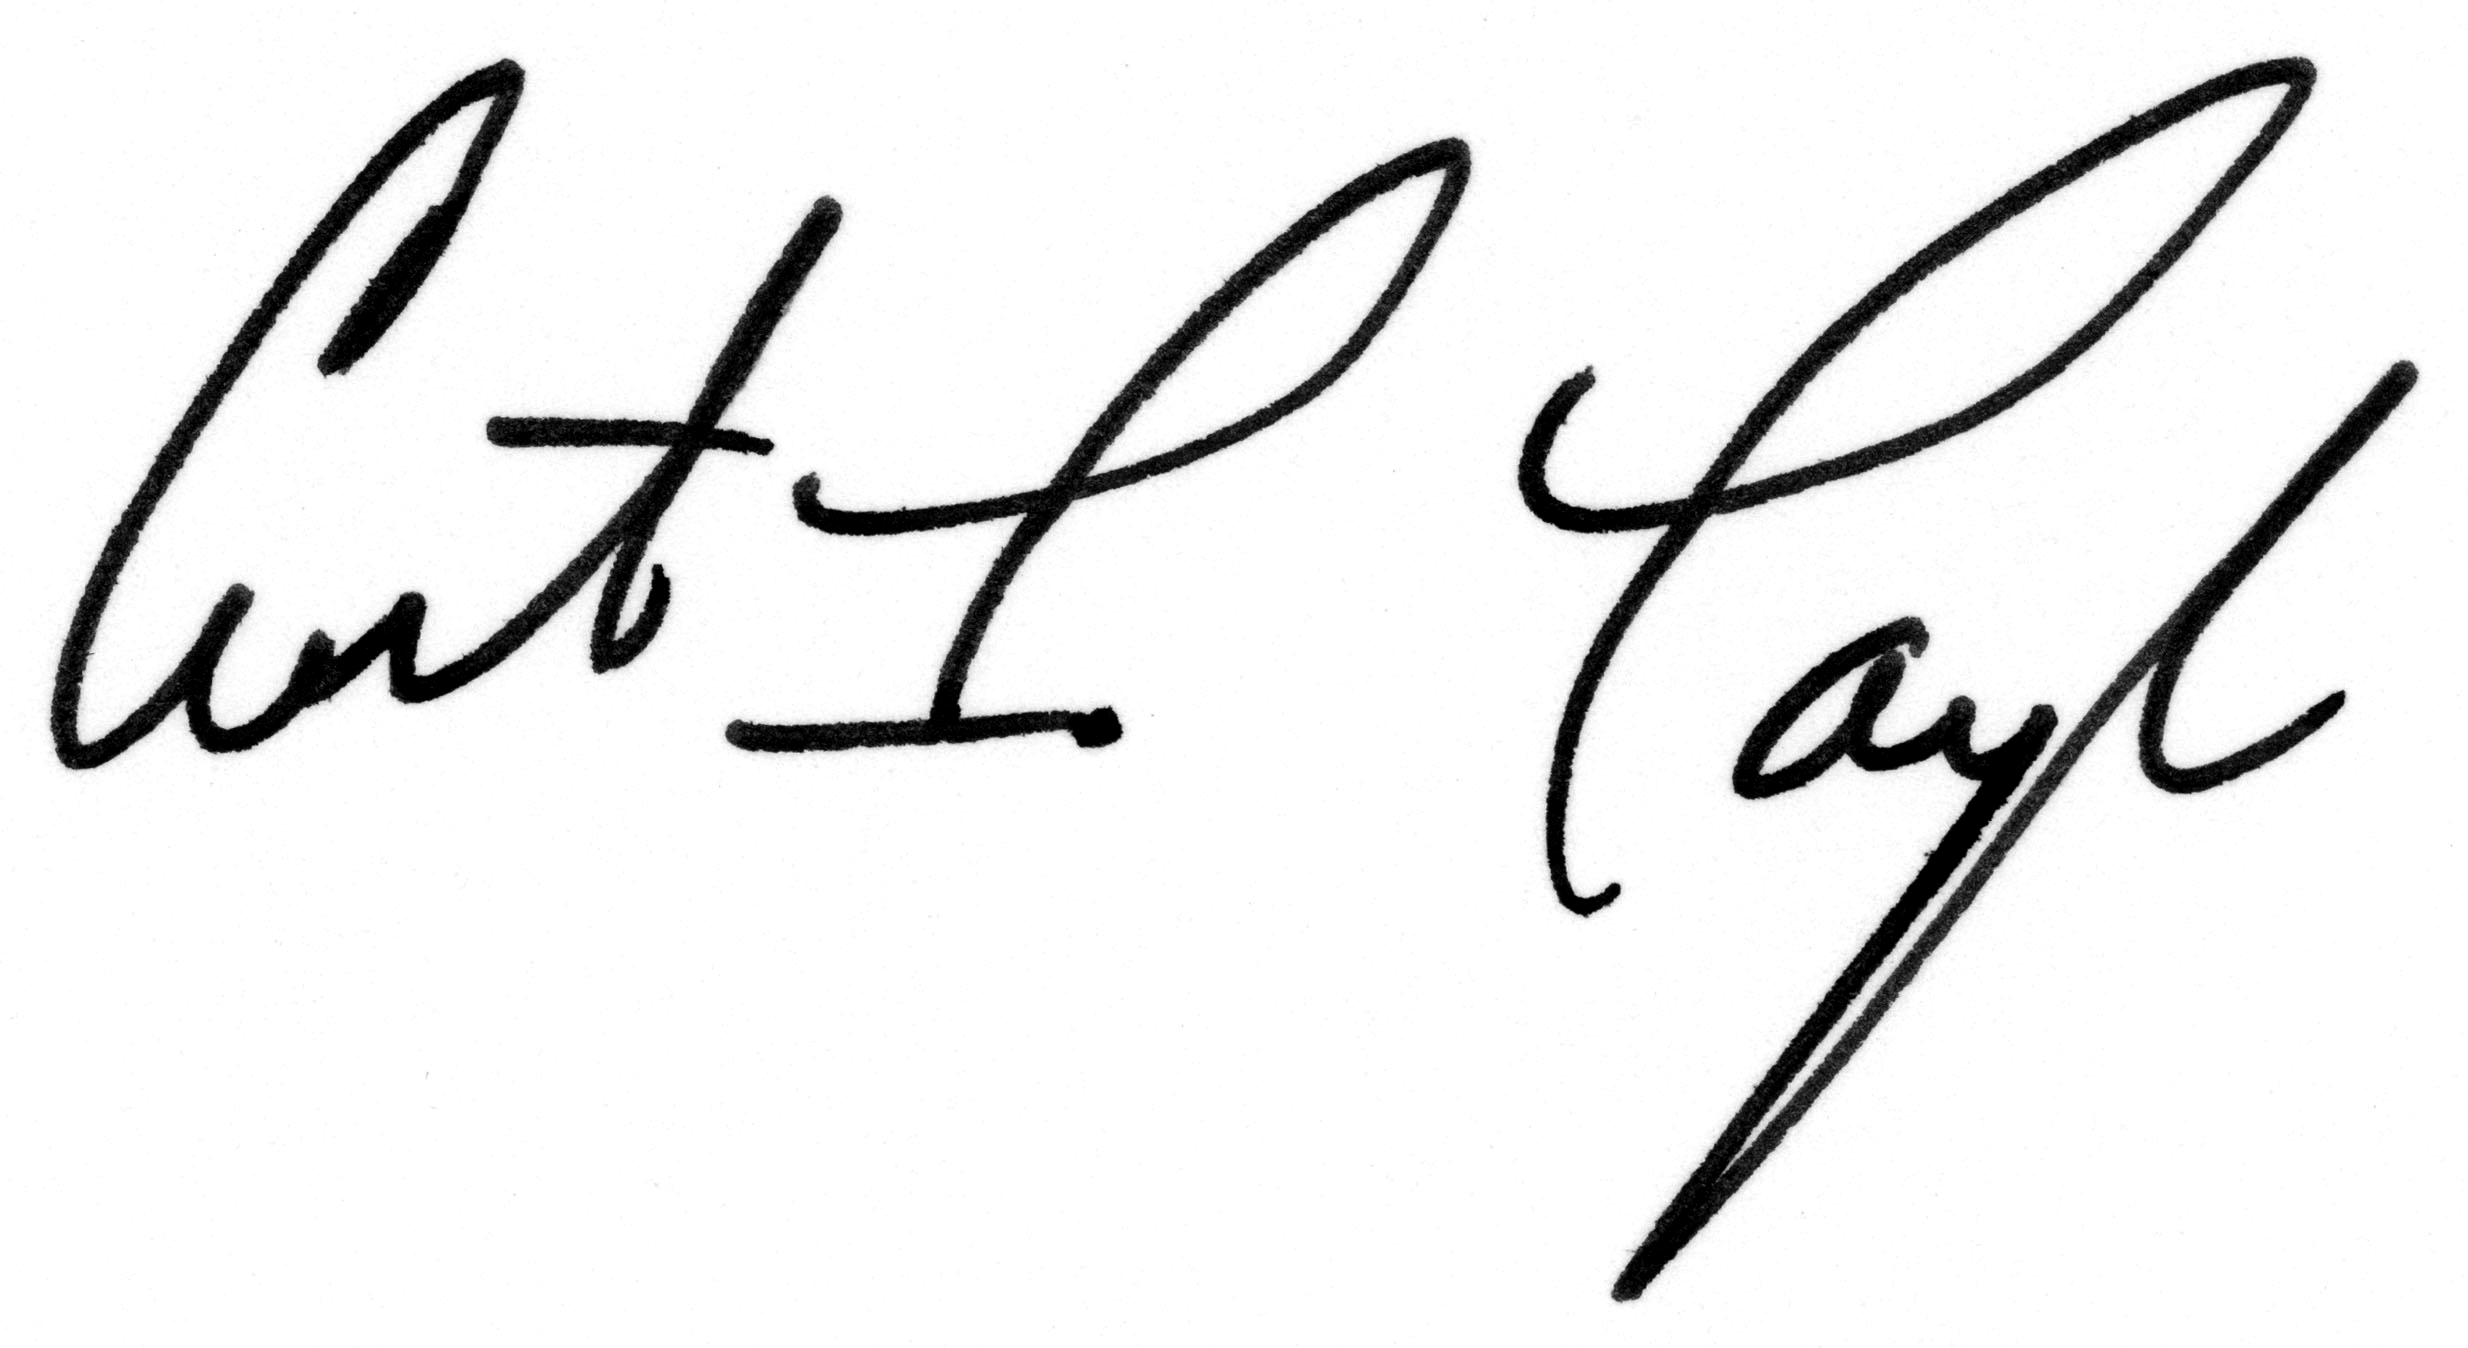 Curt I Tayl